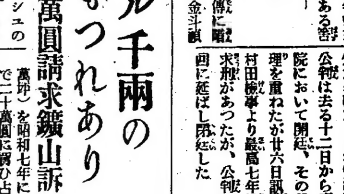 公判は去る十二日から
院において開廷、その
理を重ねたが廿六日
村田檢事より最高七年
求刑があつたが、公判
回に延ばし閉廷した
ル千兩の
もつれあり
萬圓請求鑛山訴
シュの
萬坪）を昭和七年に
で二十萬圓に買ひ占